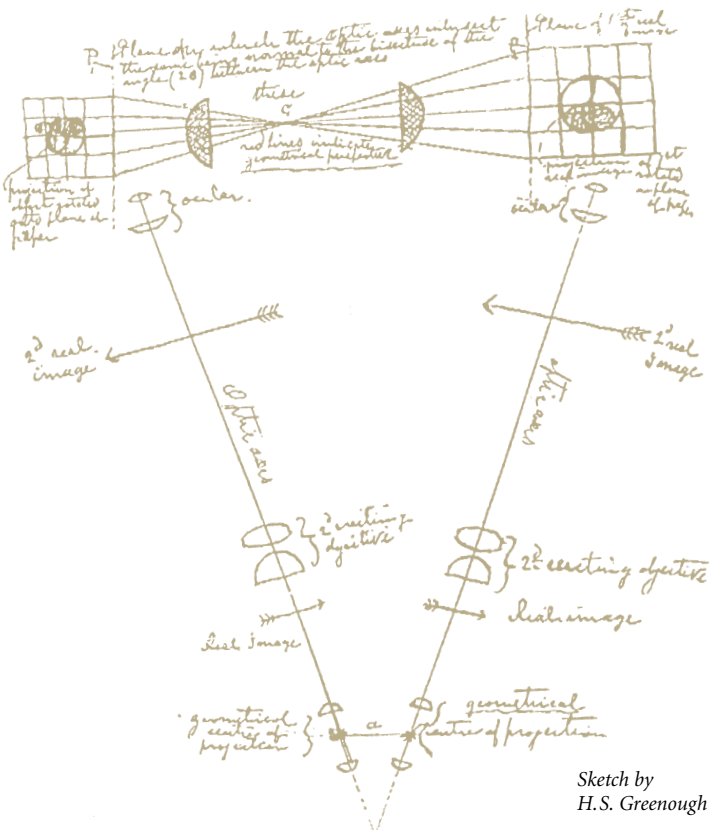 Plane in which the optic axes intersect
the same being normal to the bisectrice of the
angle (2θ) between the optic axes
Plane of 1st real
image
P
P
these
red lines indicate
geometrical perspective
projection of
object
onto plane of
paper
projection of 1st
real image rotated
plane
of paper
ocular.
ocular
2d real
image
2d real
Image
Optic axis
optic axis
2d erecting
objective
2d erecting objective
Real Image
Real image
geometrical
centre of
projection
a
geometrical
centre of projection
Sketch by
H. S. Greenough